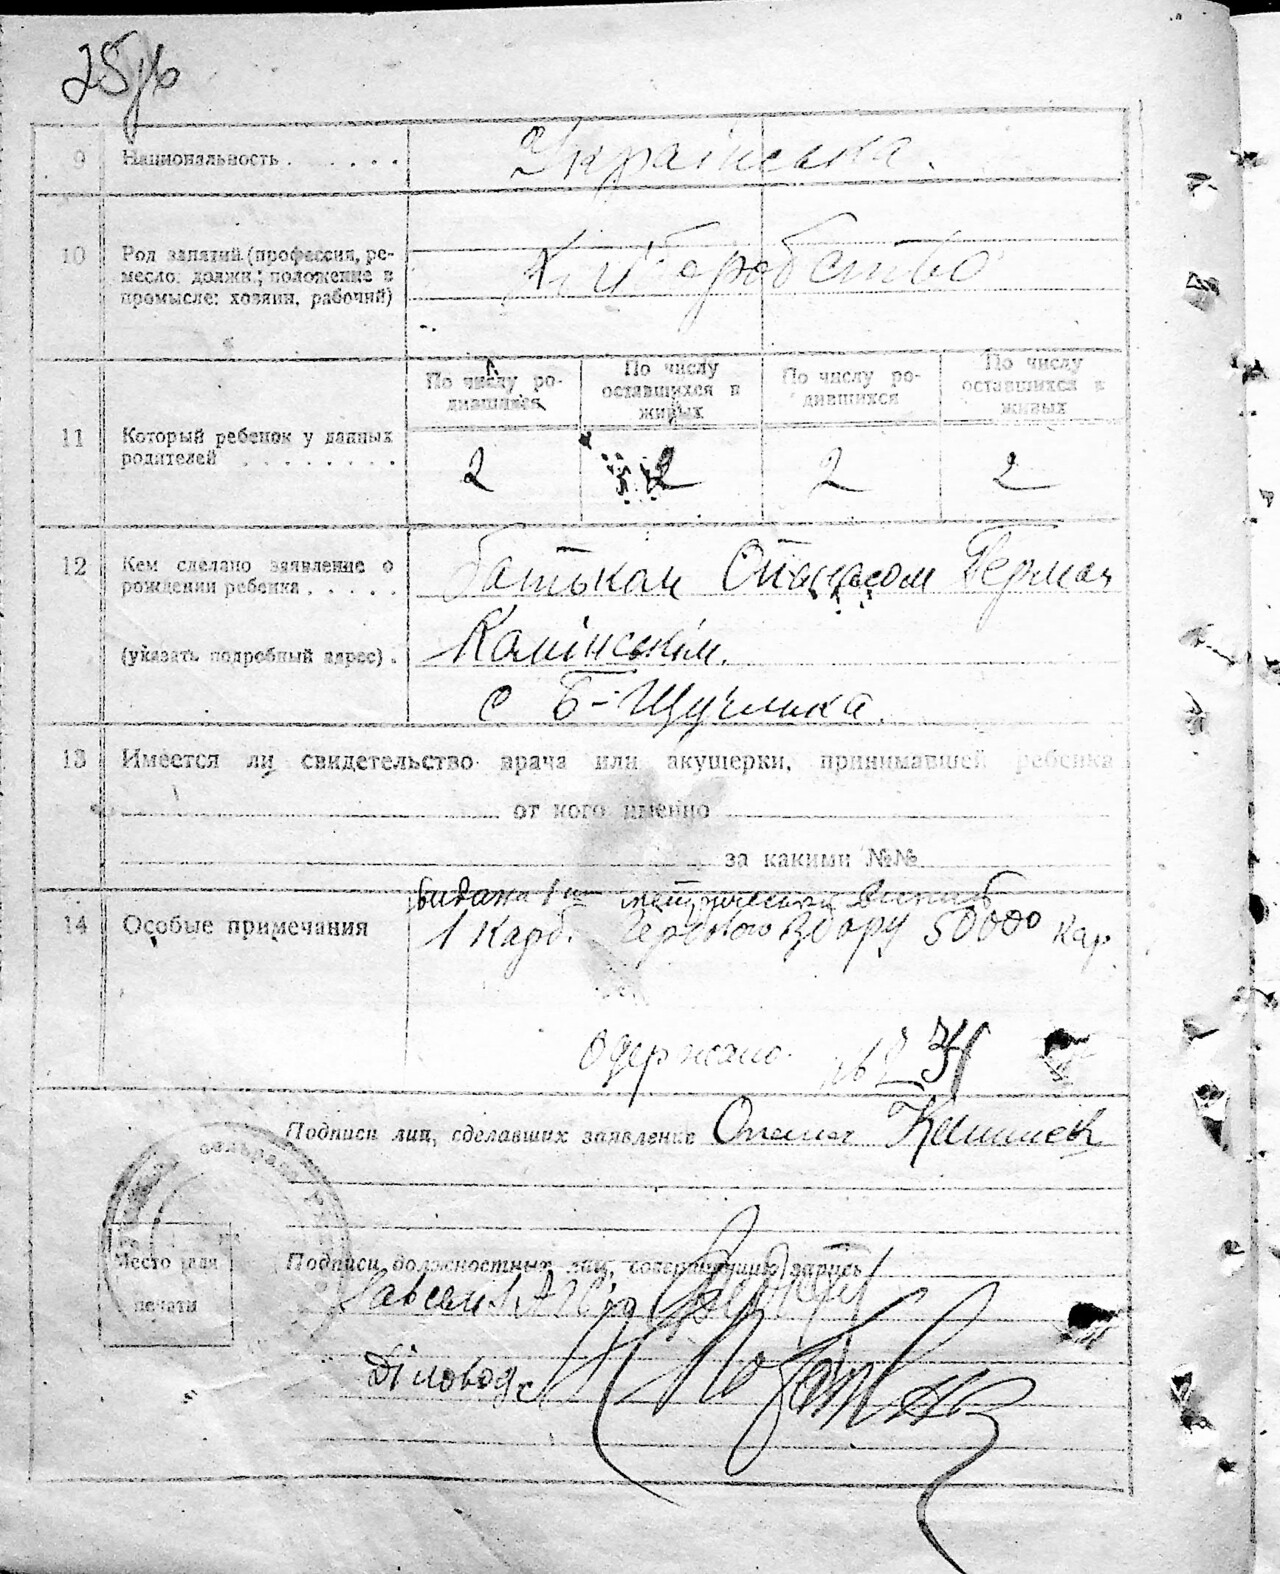 9 Национальность . . . . . . Українська.
10 Род занятий (профессия, ре-
месло, должн.; положение в
промысле: хозяин, рабочий)
Хліборобство
По числу ро-
дившихся
По числу
оставшихся в
живых
По числу ро-
дившихся
По числу
оставшихся в
живых
11 Который ребенок у данных
родителей . . . . . . . .
2 2 2 2
12 Кем сделано заявление о
рождении ребенка . . . . .
батьком Опанасом
(указать подробный адрес) .
Калінським.
с Б-Щучинка.
13 Имеется ли свидетельство врача или акушерки, принимавшей ребенка
от кого именно
за какими №№
видана
14 Особые примечания
1 Карб. Гербового Збору 50000 Кар
Одержано
Подписи лиц, сделавших заявление
сельрада
Место для
печати
Подписи должностных лиц, совершивших запись
Діловод